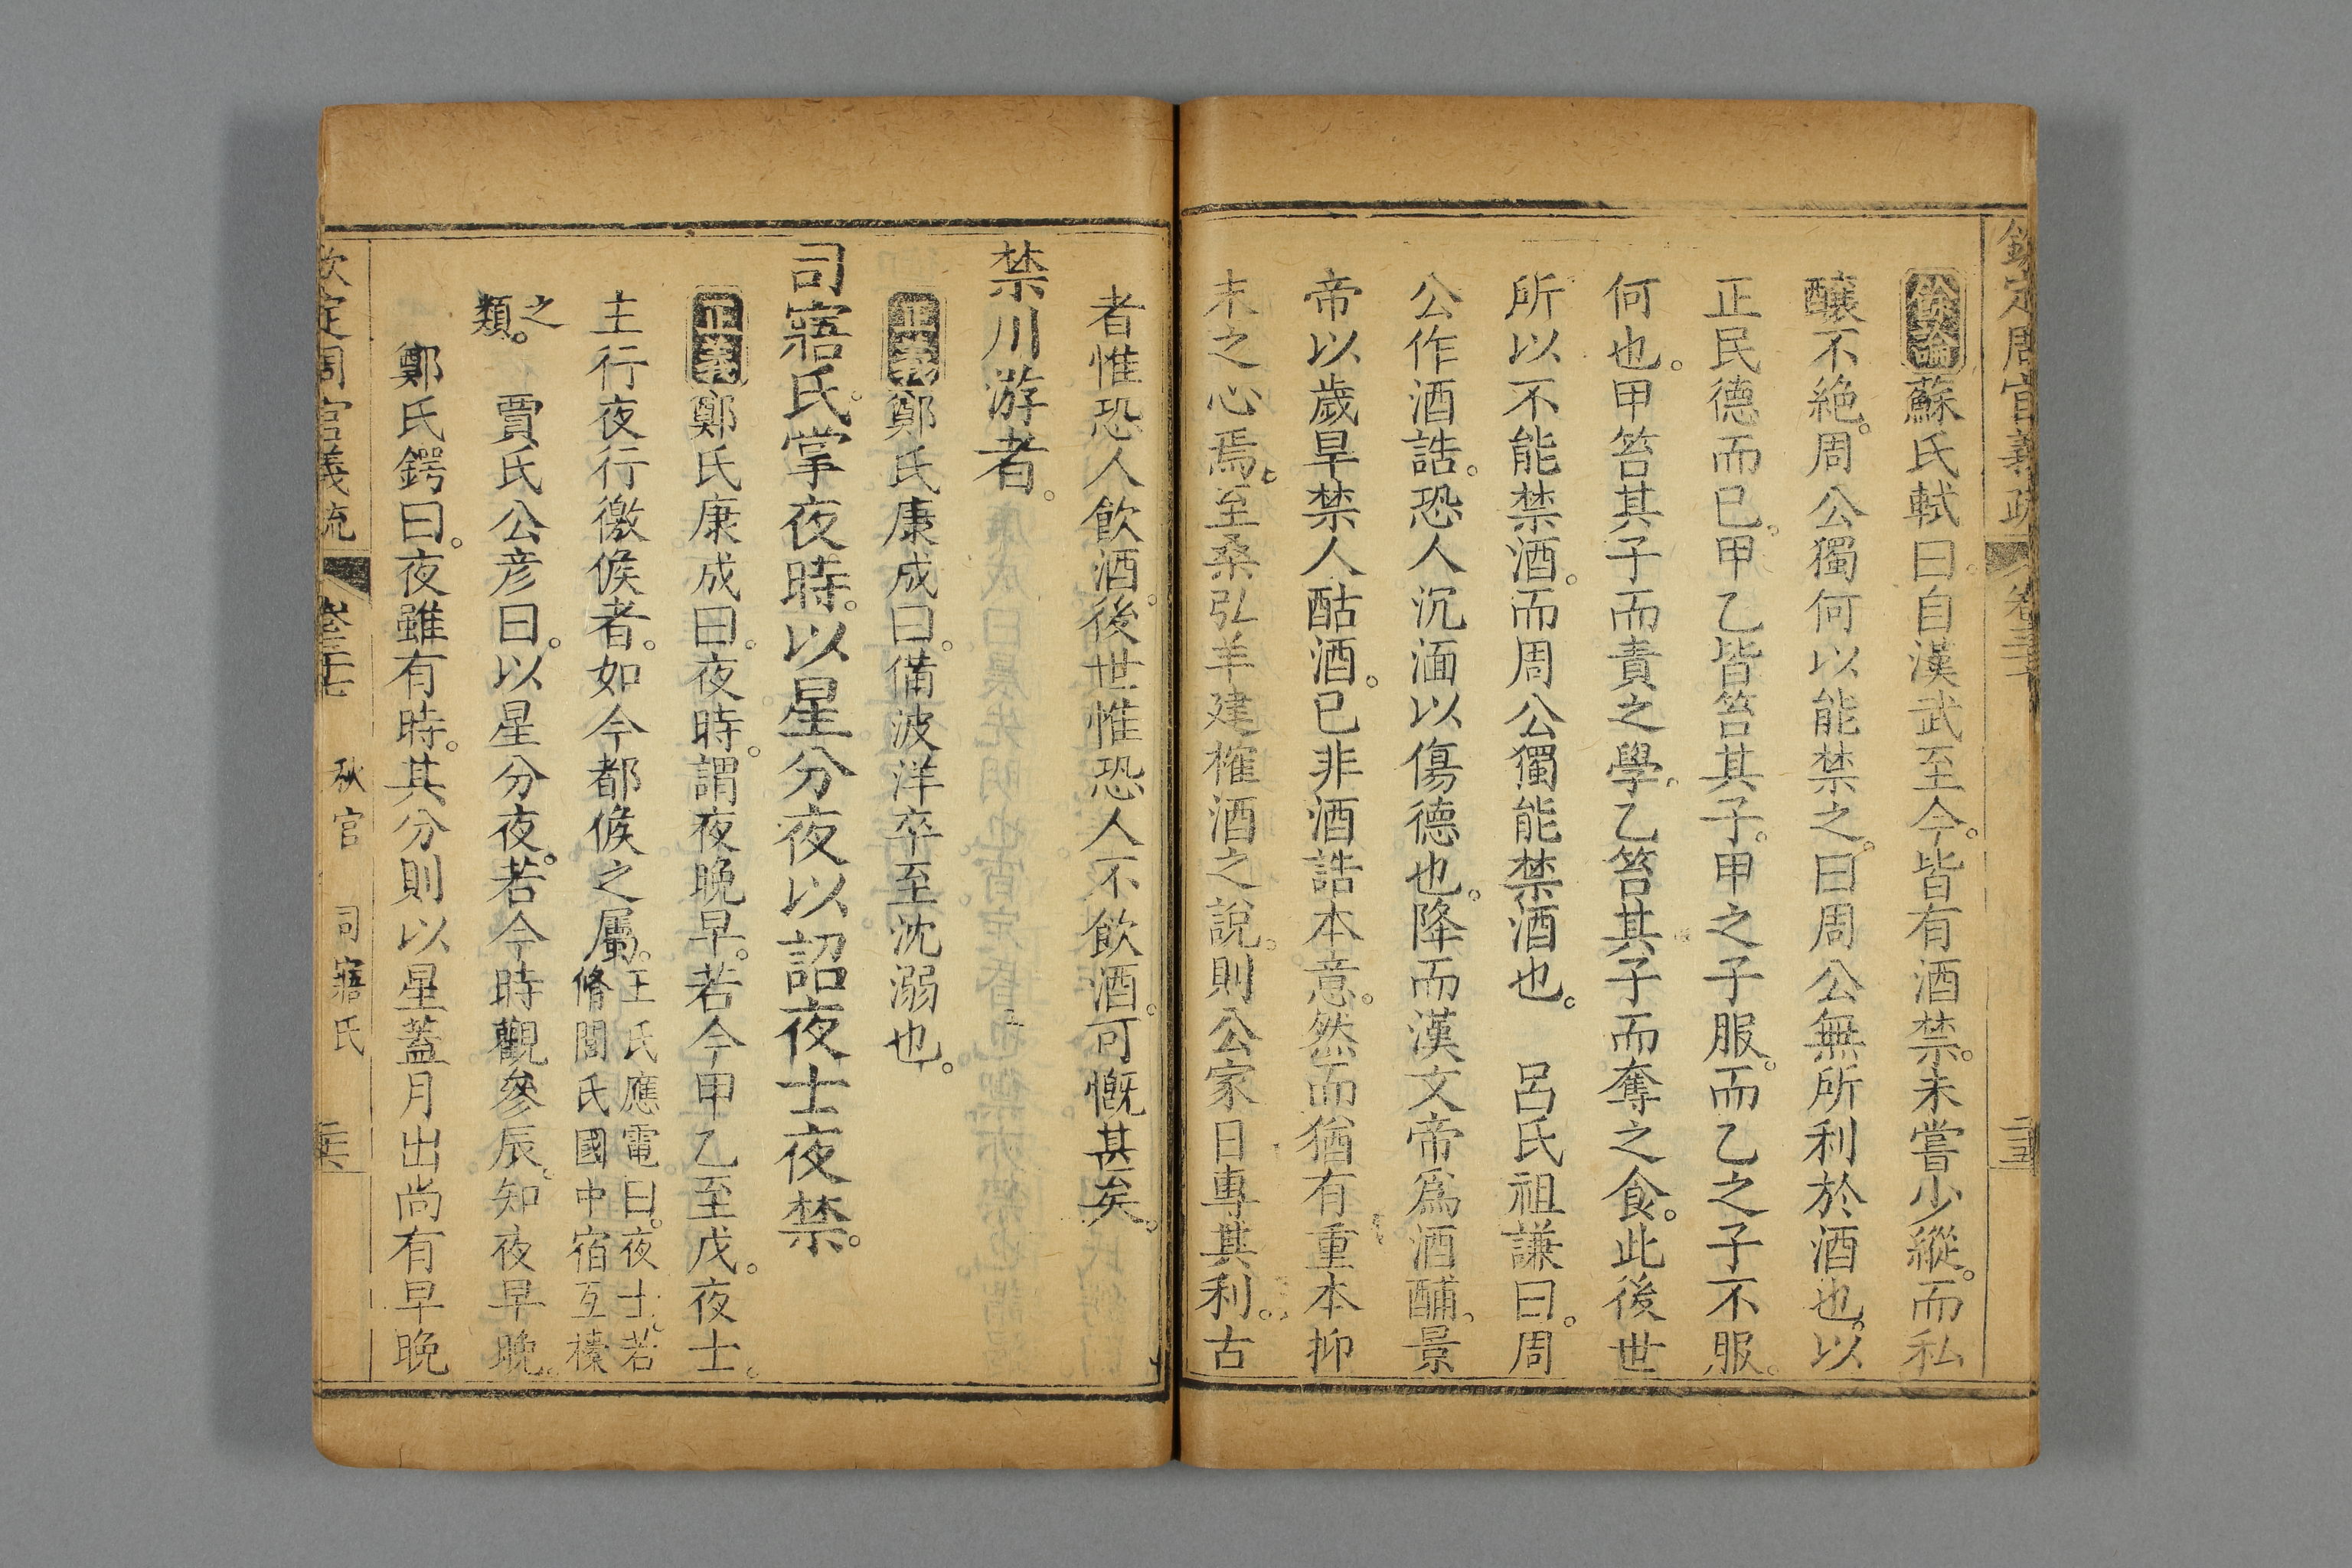 餘論蘇氏軾曰。自漢武至今。皆有酒禁。未嘗少縱。而私
釀不絶。周公獨何以能禁之。曰周公無所利於酒也。以
正民德而已。甲乙皆笞其子。甲之子服。而乙之子不服。
何也。甲笞其子而責之學。乙笞其子而奪之食。此後世
所以不能禁酒。而周公獨能禁酒也。 呂氏祖謙曰。周
公作酒誥。恐人沉湎以傷德也。降而漢文帝爲酒酺。景
帝以歲旱禁人酤酒。已非酒誥本意。然而猶有重本抑
末之心焉。至桑弘羊建榷酒之說。則公家日專其利。古
者惟恐人飲酒。後世惟恐人不飲酒。可慨甚矣。
禁川游者。
正義鄭氏康成曰。備波洋卒至沈溺也。
司寤氏。掌夜時。以星分夜以詔夜士夜禁。
正義鄭氏康成曰。夜時。謂夜晚早。若今甲乙至戊。夜士。
主行夜行徼候者。如今都候之屬。王氏應電曰。夜士。若
脩閭氏國中宿互㯿
之類。 賈氏公彦曰。以星分夜。若今時觀參辰。知夜早晚。
鄭氏鍔曰。夜雖有時。其分則以星蓋月出尚有早晚
欽定周官義疏 秋官 司寤氏